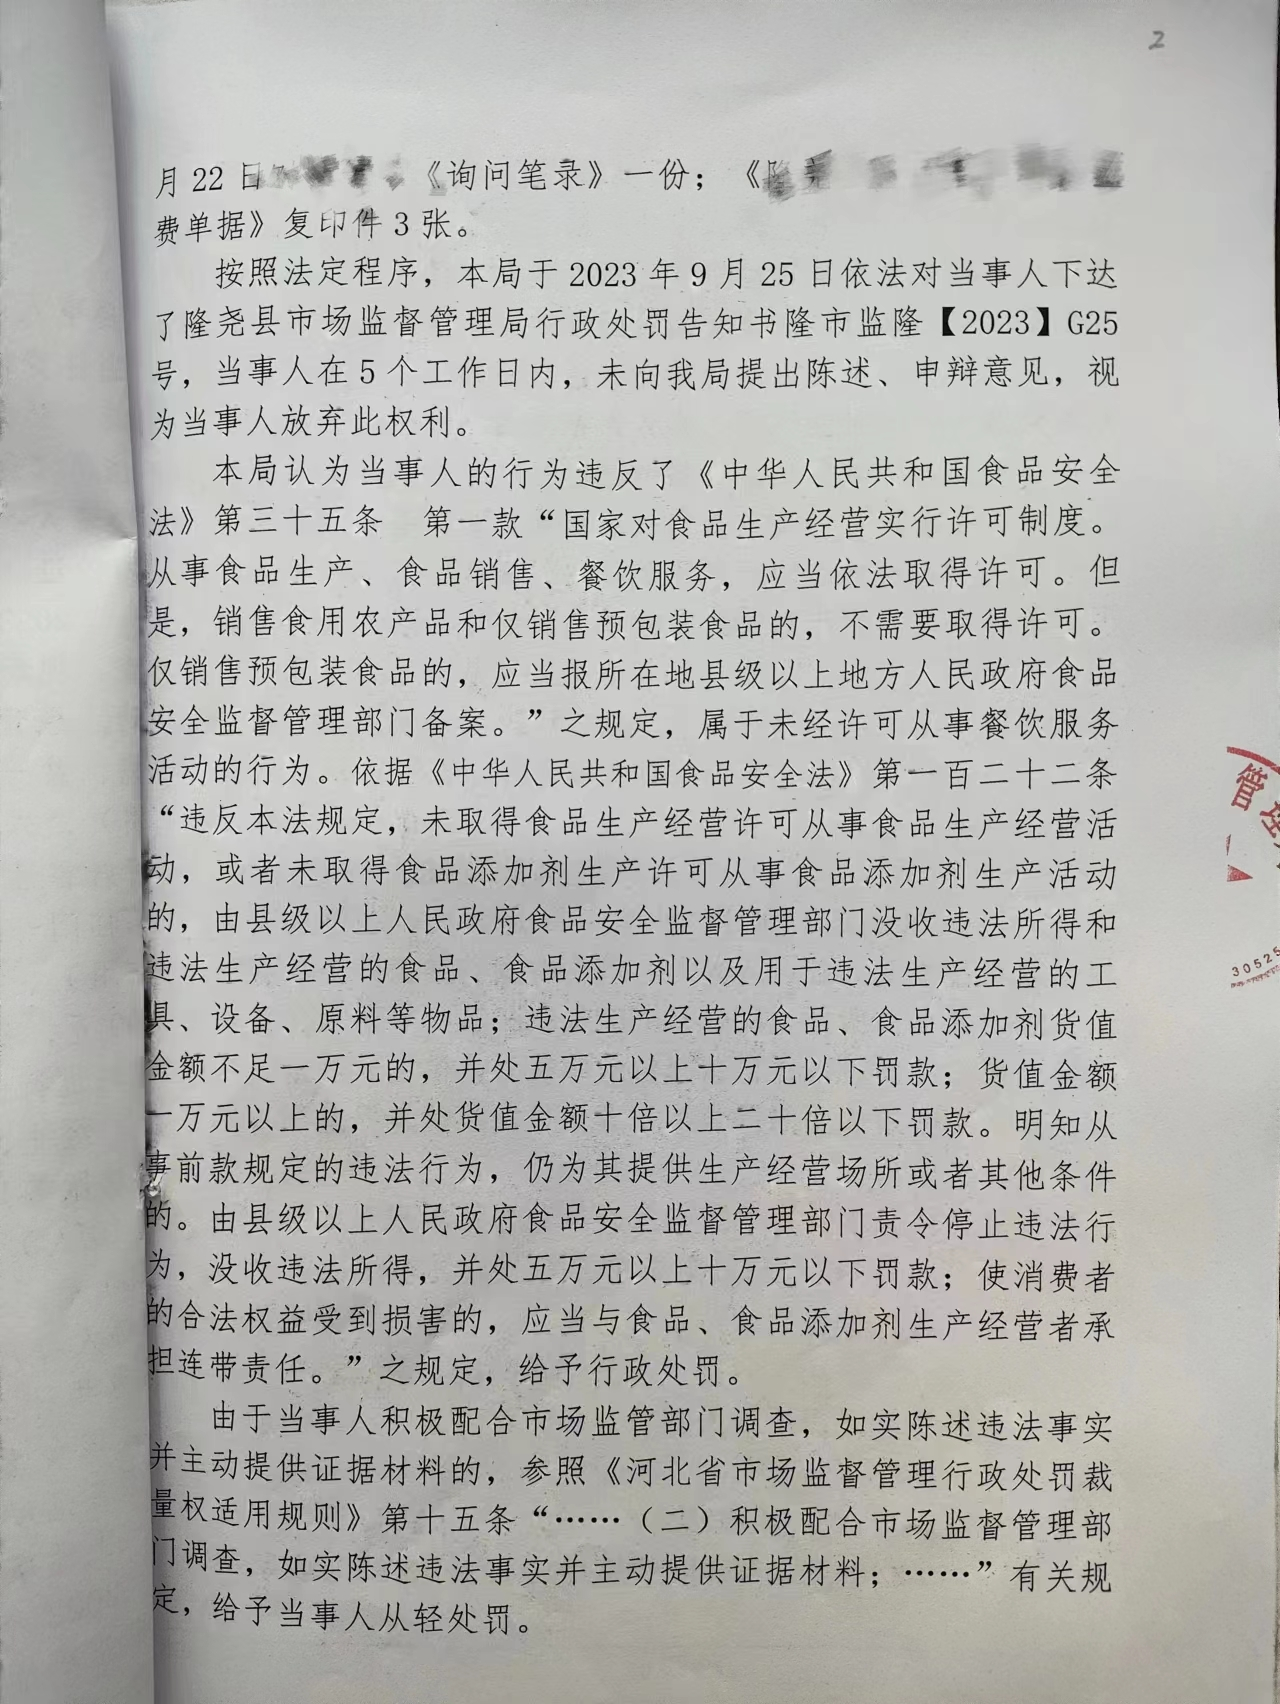 2
月22日《询问笔录》一份；《隆尧
费单据》复印件3张。
按照法定程序，本局于2023年9月25日依法对当事人下达
了隆尧县市场监督管理局行政处罚告知书隆市监隆【2023】G25
号，当事人在5个工作日内，未向我局提出陈述、申辩意见，视
为当事人放弃此权利。
本局认为当事人的行为违反了《中华人民共和国食品安全
法》第三十五条 第一款“国家对食品生产经营实行许可制度。
从事食品生产、食品销售、餐饮服务，应当依法取得许可。但
是，销售食用农产品和仅销售预包装食品的，不需要取得许可。
仅销售预包装食品的，应当报所在地县级以上地方人民政府食品
安全监督管理部门备案。”之规定，属于未经许可从事餐饮服务
活动的行为。依据《中华人民共和国食品安全法》第一百二十二条
“违反本法规定，未取得食品生产经营许可从事食品生产经营活
动，或者未取得食品添加剂生产许可从事食品添加剂生产活动
的，由县级以上人民政府食品安全监督管理部门没收违法所得和
违法生产经营的食品、食品添加剂以及用于违法生产经营的工
具、设备、原料等物品；违法生产经营的食品、食品添加剂货值
金额不足一万元的，并处五万元以上十万元以下罚款；货值金额
一万元以上的，并处货值金额十倍以上二十倍以下罚款。明知从
事前款规定的违法行为，仍为其提供生产经营场所或者其他条件
的。由县级以上人民政府食品安全监督管理部门责令停止违法行
为，没收违法所得，并处五万元以上十万元以下罚款；使消费者
的合法权益受到损害的，应当与食品、食品添加剂生产经营者承
担连带责任。”之规定，给予行政处罚。
由于当事人积极配合市场监管部门调查，如实陈述违法事实
并主动提供证据材料的，参照《河北省市场监督管理行政处罚裁
量权适用规则》第十五条“……（二）积极配合市场监督管理部
门调查，如实陈述违法事实并主动提供证据材料；……”有关规
定，给予当事人从轻处罚。
管理
30525